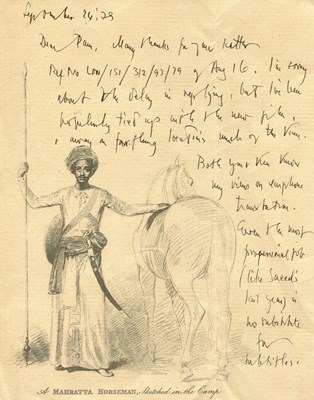 September 24, '79
Dear Pam, Many thanks for your letter
Ref No LON/151/312/93/79 of Aug 16. I'm sorry
about the delay in replying, but I've been
hopelessly tied up with the new film,
moving a
location much of the time.
Both you know
my views on
translation.
Even the most
professional job
(like Saeed's
last year) is
no substitute
for
subtitles.
A MAHRATTA HORSEMAN, Sketched in the Camp